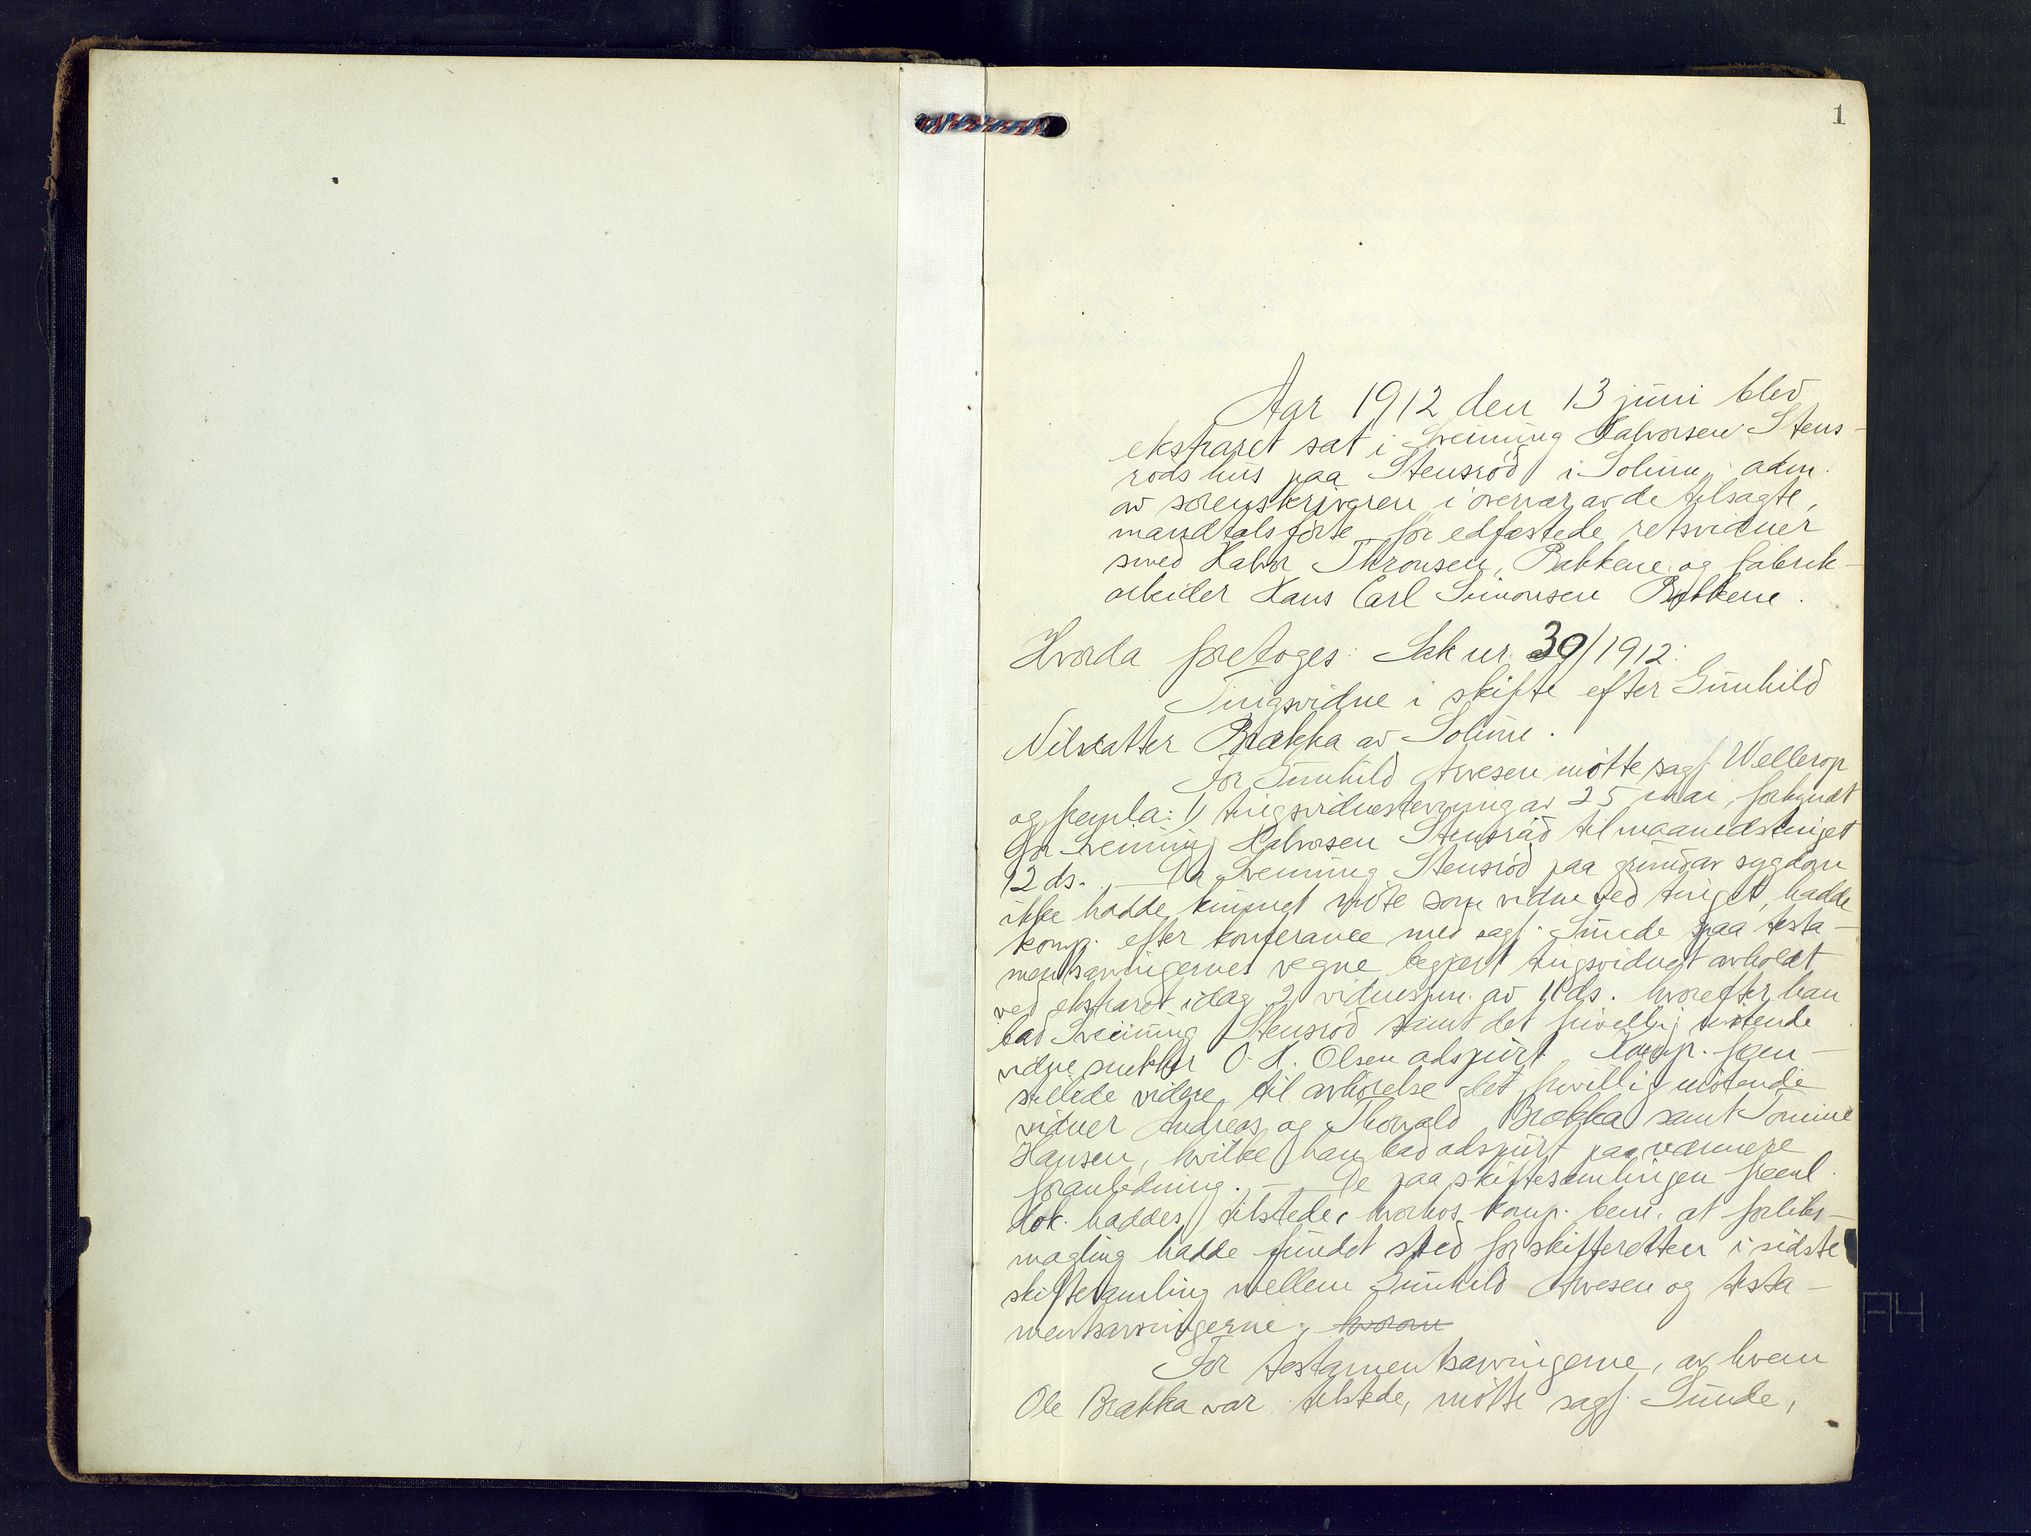 1
Aar 1912 den 13 juni blev
ekstraret sat i Sveinung Halvorsen Stens-
røds hus paa Stensrød i Solum, adm.
av sorenskriveren i overvær av de tilsagte,
mandtalsførte før edfæstede retsvidner
smed Halvor Thronsen, Bakkene og fabrik-
arbeider Hans Carl Simonsen Bakkene.
Hvorda foretoges: Sak nr. 39/1912:
Tingsvidne i skifte efter Gunhild
Nilsdatter Brækka av Solum.
For Gunhild Avesen møtte sagf. Wellerop
og freml a: 1) tingsvidnestevning av 25 mai, forkyndt
for Sveinung Halvorsen Stensrød til maanedstinget
12 ds. – Da Sveinung Stensrød paa grund av sygdom
ikke hadde kunnet møte som vidne ved tinget, hadde
komp. efter konferance med sagf. Sunde paa testa-
mentsarvingernes vegne begjært tingsvidnet avholdt
ved ekstraret idag 2) vidnestevn. av 11 ds. hvorefter han
bad Sveinung Stensrød samt det frivillig møtende
vidne snekker O. H. Olsen adspurt. Komp. frem-
stillede videre til avhørelse det frivillig møtende
vidner Andreas og Thorvald Brækka samt Tomine
Hansen, hvilke han bad adspurt paa nærmere
foranledning. – De paa skiftesamlingen freml.
dok. haddes tilstede, hvorhos komp. bem. at forliks-
mægling hadde fundet sted for skifteretten i sidste
skiftesamling mellem Gunhild Avesen og testa-
mentsarvingerne, hvorom
For testamentsarvingerne, av hvem
Ole Brækka var tilstede, møtte sagf. Sunde,